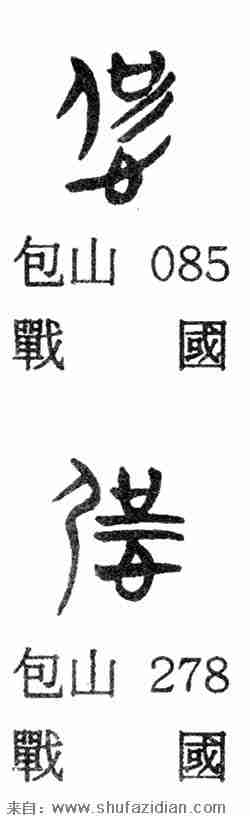 包山 085
戰 國
包山 278
戰 國
来自: www.shufazidian.com